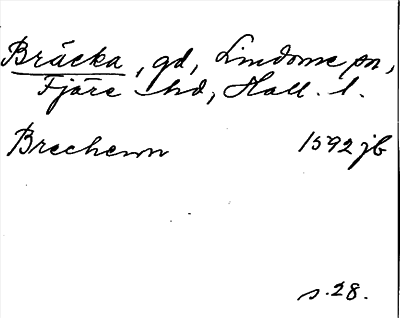 Bräcka, gd, Lindome sn,
Fjäre hd, Hall. l.
Brechenn 1592 jb
s. 28.